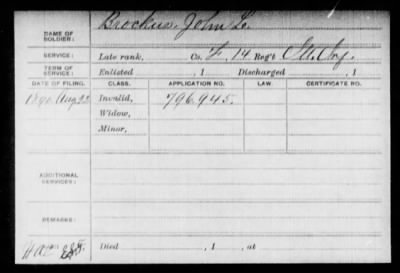 NAME OF SOLDIER: Brockus, John L.
SERVICE: Late rank, Co. F, 14 Reg't Ill. Cav.
TERM OF SERVICE: Enlisted , 1 Discharged , 1
DATE OF FILING. CLASS. APPLICATION NO. LAW. CERTIFICATE NO.
1890 Aug 22 Invalid, 796.945.
Widow,
Minor,
ADDITIONAL SERVICES:
REMARKS:
Died , 1 , at